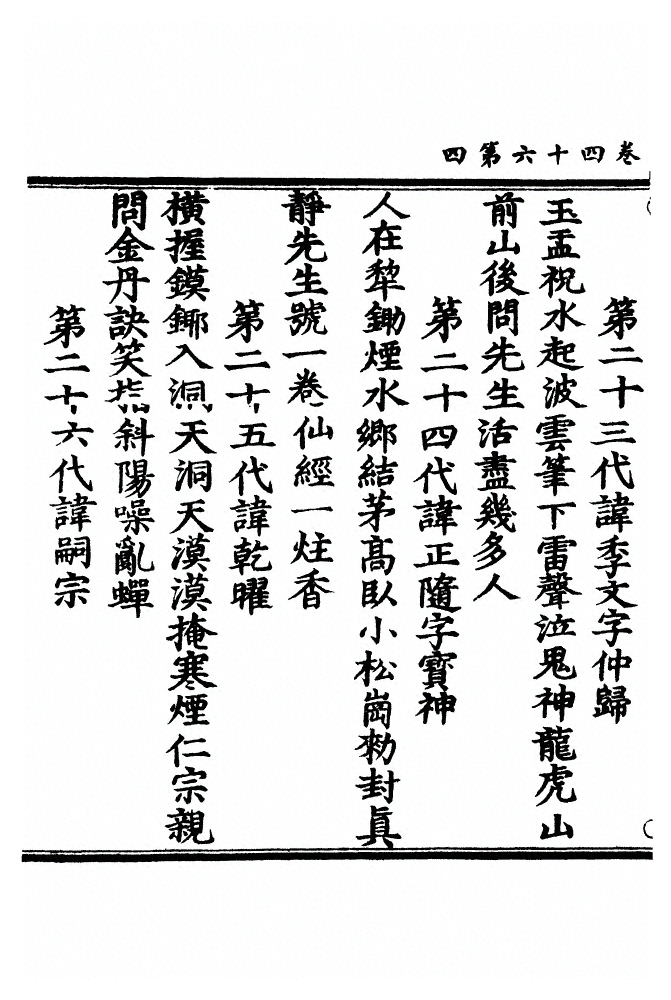 卷四十六第四
第二十三代諱季文字仲歸
玉盂祝水起波雲筆下雷聲泣鬼神龍虎山
前山後問先生活盡幾多人
第二十四代諱正隨字寶神
人在犂鋤煙水鄉結茅高臥小松崗勑封眞
靜先生號一卷仙經一炷香
第二十五代諱乾曜
橫握鏌鎁入洞天洞天漠漠掩寒煙仁宗親
問金丹訣笑指斜陽噪亂蟬
第二十六代諱嗣宗